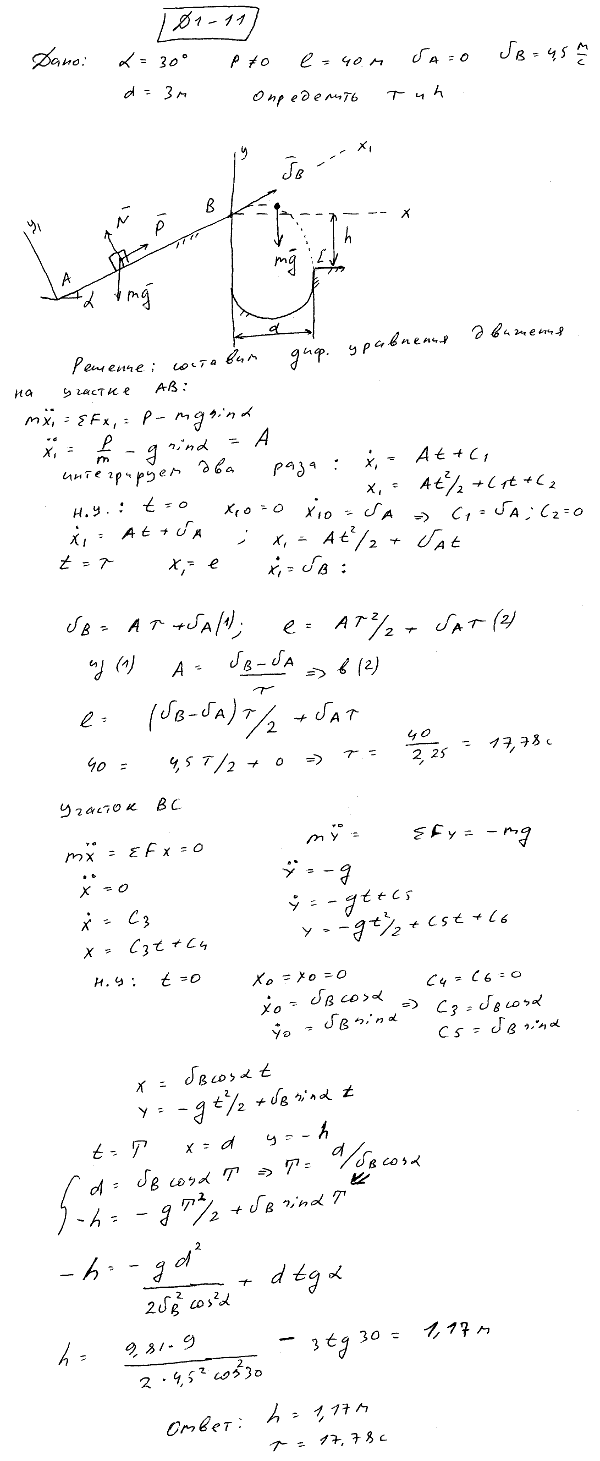 Д1-11
Дано: α = 30° P ≠ 0 ℓ = 40 м υA = 0 υB = 4,5 м/с
d = 3 м Определить τ и h
y x₁ ῡB
y₁ N̄ P̄ B x
A α mḡ mḡ h C
d
Решение: составим диф. уравнения движения
на участке AB:
mẍ₁ = ΣFx₁ = P - mg sinα
ẍ₁ = P/m - g sinα = A
интегрируем два раза: ẋ₁ = At + C₁
x₁ = At²/2 + C₁t + C₂
н.у.: t = 0 x₁₀ = 0 ẋ₁₀ = υA ⇒ C₁ = υA; C₂ = 0
ẋ₁ = At + υA ; x₁ = At²/2 + υAt
t = τ x₁ = ℓ ẋ₁ = υB:
υB = Aτ + υA (1); ℓ = Aτ²/2 + υAτ (2)
из (1) A = (υB - υA)/τ ⇒ в (2)
ℓ = (υB - υA)τ/2 + υAτ
40 = 4,5τ/2 + 0 ⇒ τ = 40/2,25 = 17,78 с
Участок BC
mẍ = ΣFx = 0 mÿ = ΣFy = -mg
ẍ = 0 ÿ = -g
ẋ = C₃ ẏ = -gt + C₅
x = C₃t + C₄ y = -gt²/2 + C₅t + C₆
н.у: t = 0 x₀ = x₀ = 0 C₄ = C₆ = 0
ẋ₀ = υB cosα ⇒ C₃ = υB cosα
ẏ₀ = υB sinα C₅ = υB sinα
x = υB cosα t
y = -gt²/2 + υB sinα t
t = T x = d y = -h
d = υB cosα T ⇒ T = d/υB cosα
-h = -gT²/2 + υB sinα T
-h = - gd²/(2υB² cos²α) + d tgα
h = 9,81·9/(2·4,5² cos²30) - 3tg30 = 1,17 м
Ответ: h = 1,17 м
τ = 17,78 с